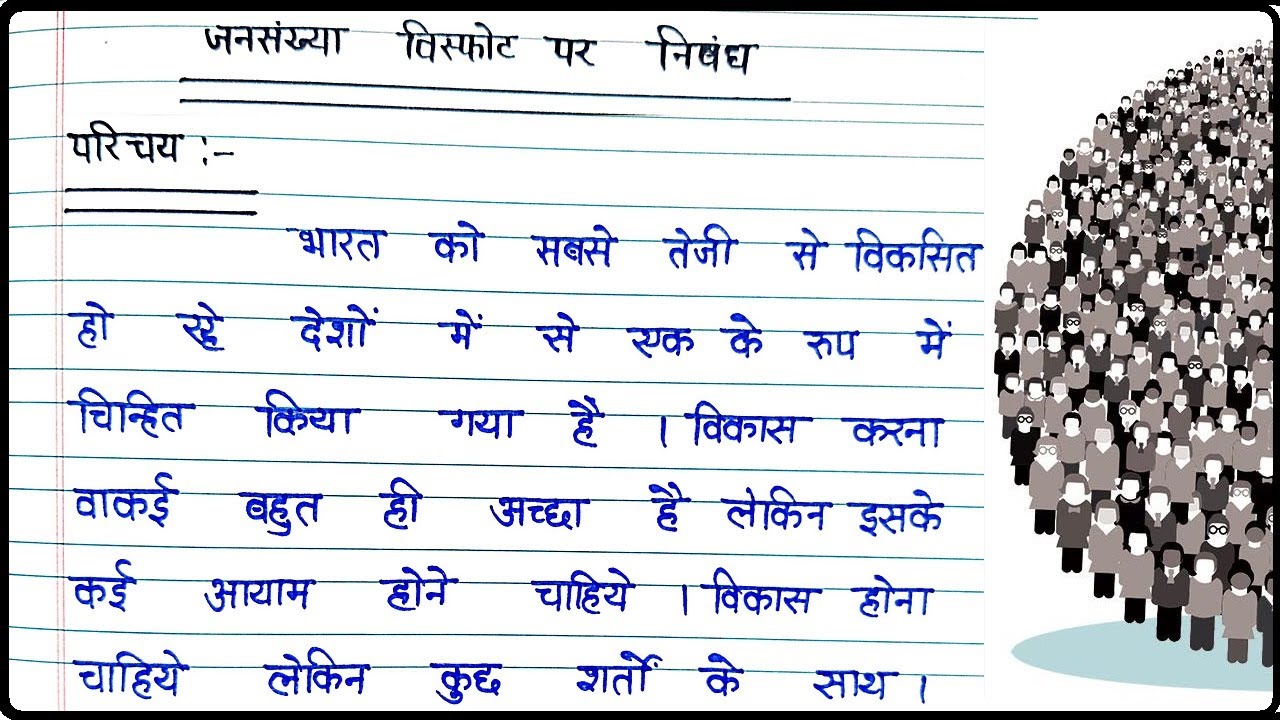 जनसंख्या विस्फोट पर निबंध
परिचय :-
भारत को सबसे तेजी से विकसित
हो रहे देशों में से एक के रुप में
चिन्हित किया गया है । विकास करना
वाकई बहुत ही अच्छा है लेकिन इसके
कई आयाम होने चाहिये । विकास होना
चाहिये लेकिन कुछ शर्तों के साथ ।